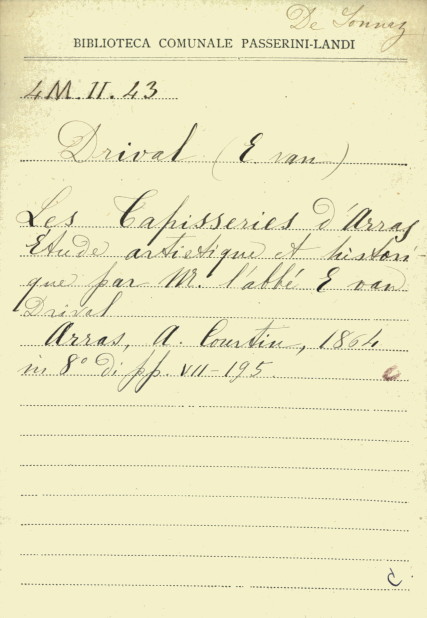 De Sonnaz
BIBLIOTECA COMUNALE PASSERINI-LANDI
4M.II.43
Drival (E. van)
Les Tapisseries d'Arras
Etude artistique et histori-
que par M. l'abbé E van
Drival
Arras, A. Courtin, 1864
in 8° di pp. VII-195.
C